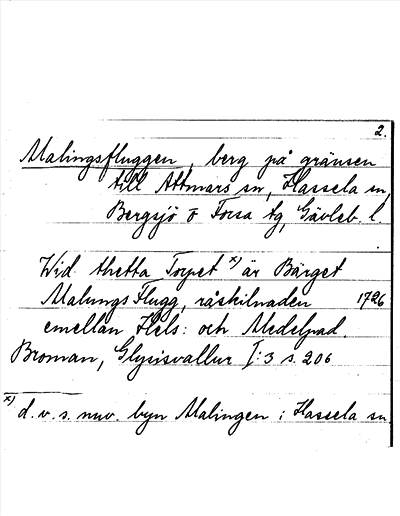 2.
Malingsfluggen, berg på gränsen
till Attmars sn, Hassela sn
Bergsjö o Forsa tg, Gävleb. l.
Wid thetta Torpet x) är Bärget
Malungs Flugg, råskilnaden 1726
emellan Hels: och Medelpad.
Broman, Glysisvallur I:3 s. 206
x) d.v.s. nuv. byn Malingen i Hassela sn